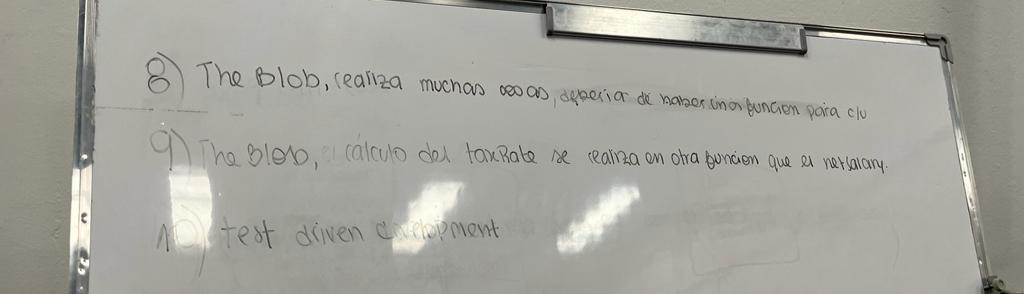 8) The Blob, realiza muchas cosas, deberia de haber una funcion para c/u
9) The Blob, el cálculo del taxRate se realiza en otra funcion que es netsalary.
10) test driven development